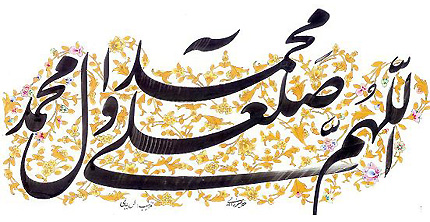 اللّهمَّ صل علی محمد وآل محمد